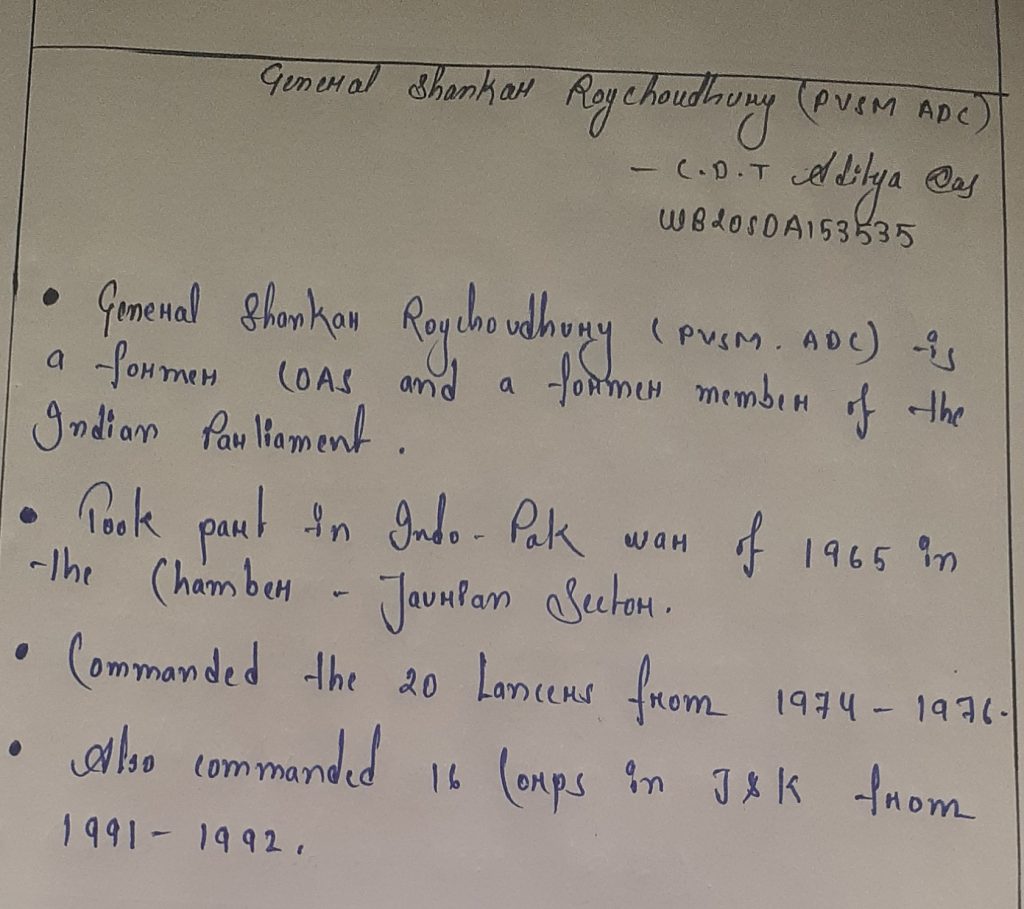 General Shankar Roychoudhury (PVSM ADC)
- C.D.T Aditya Das
WB20SDA153535
• General Shankar Roychoudhury (PVSM. ADC) is
a former COAS and a former member of the
Indian Parliament.
• Took part in Indo-Pak war of 1965 in
the Chamber - Jaurian Sector.
• Commanded the 20 Lancers from 1974 - 1976.
• Also commanded 16 Corps in J & K from
1991 - 1992.